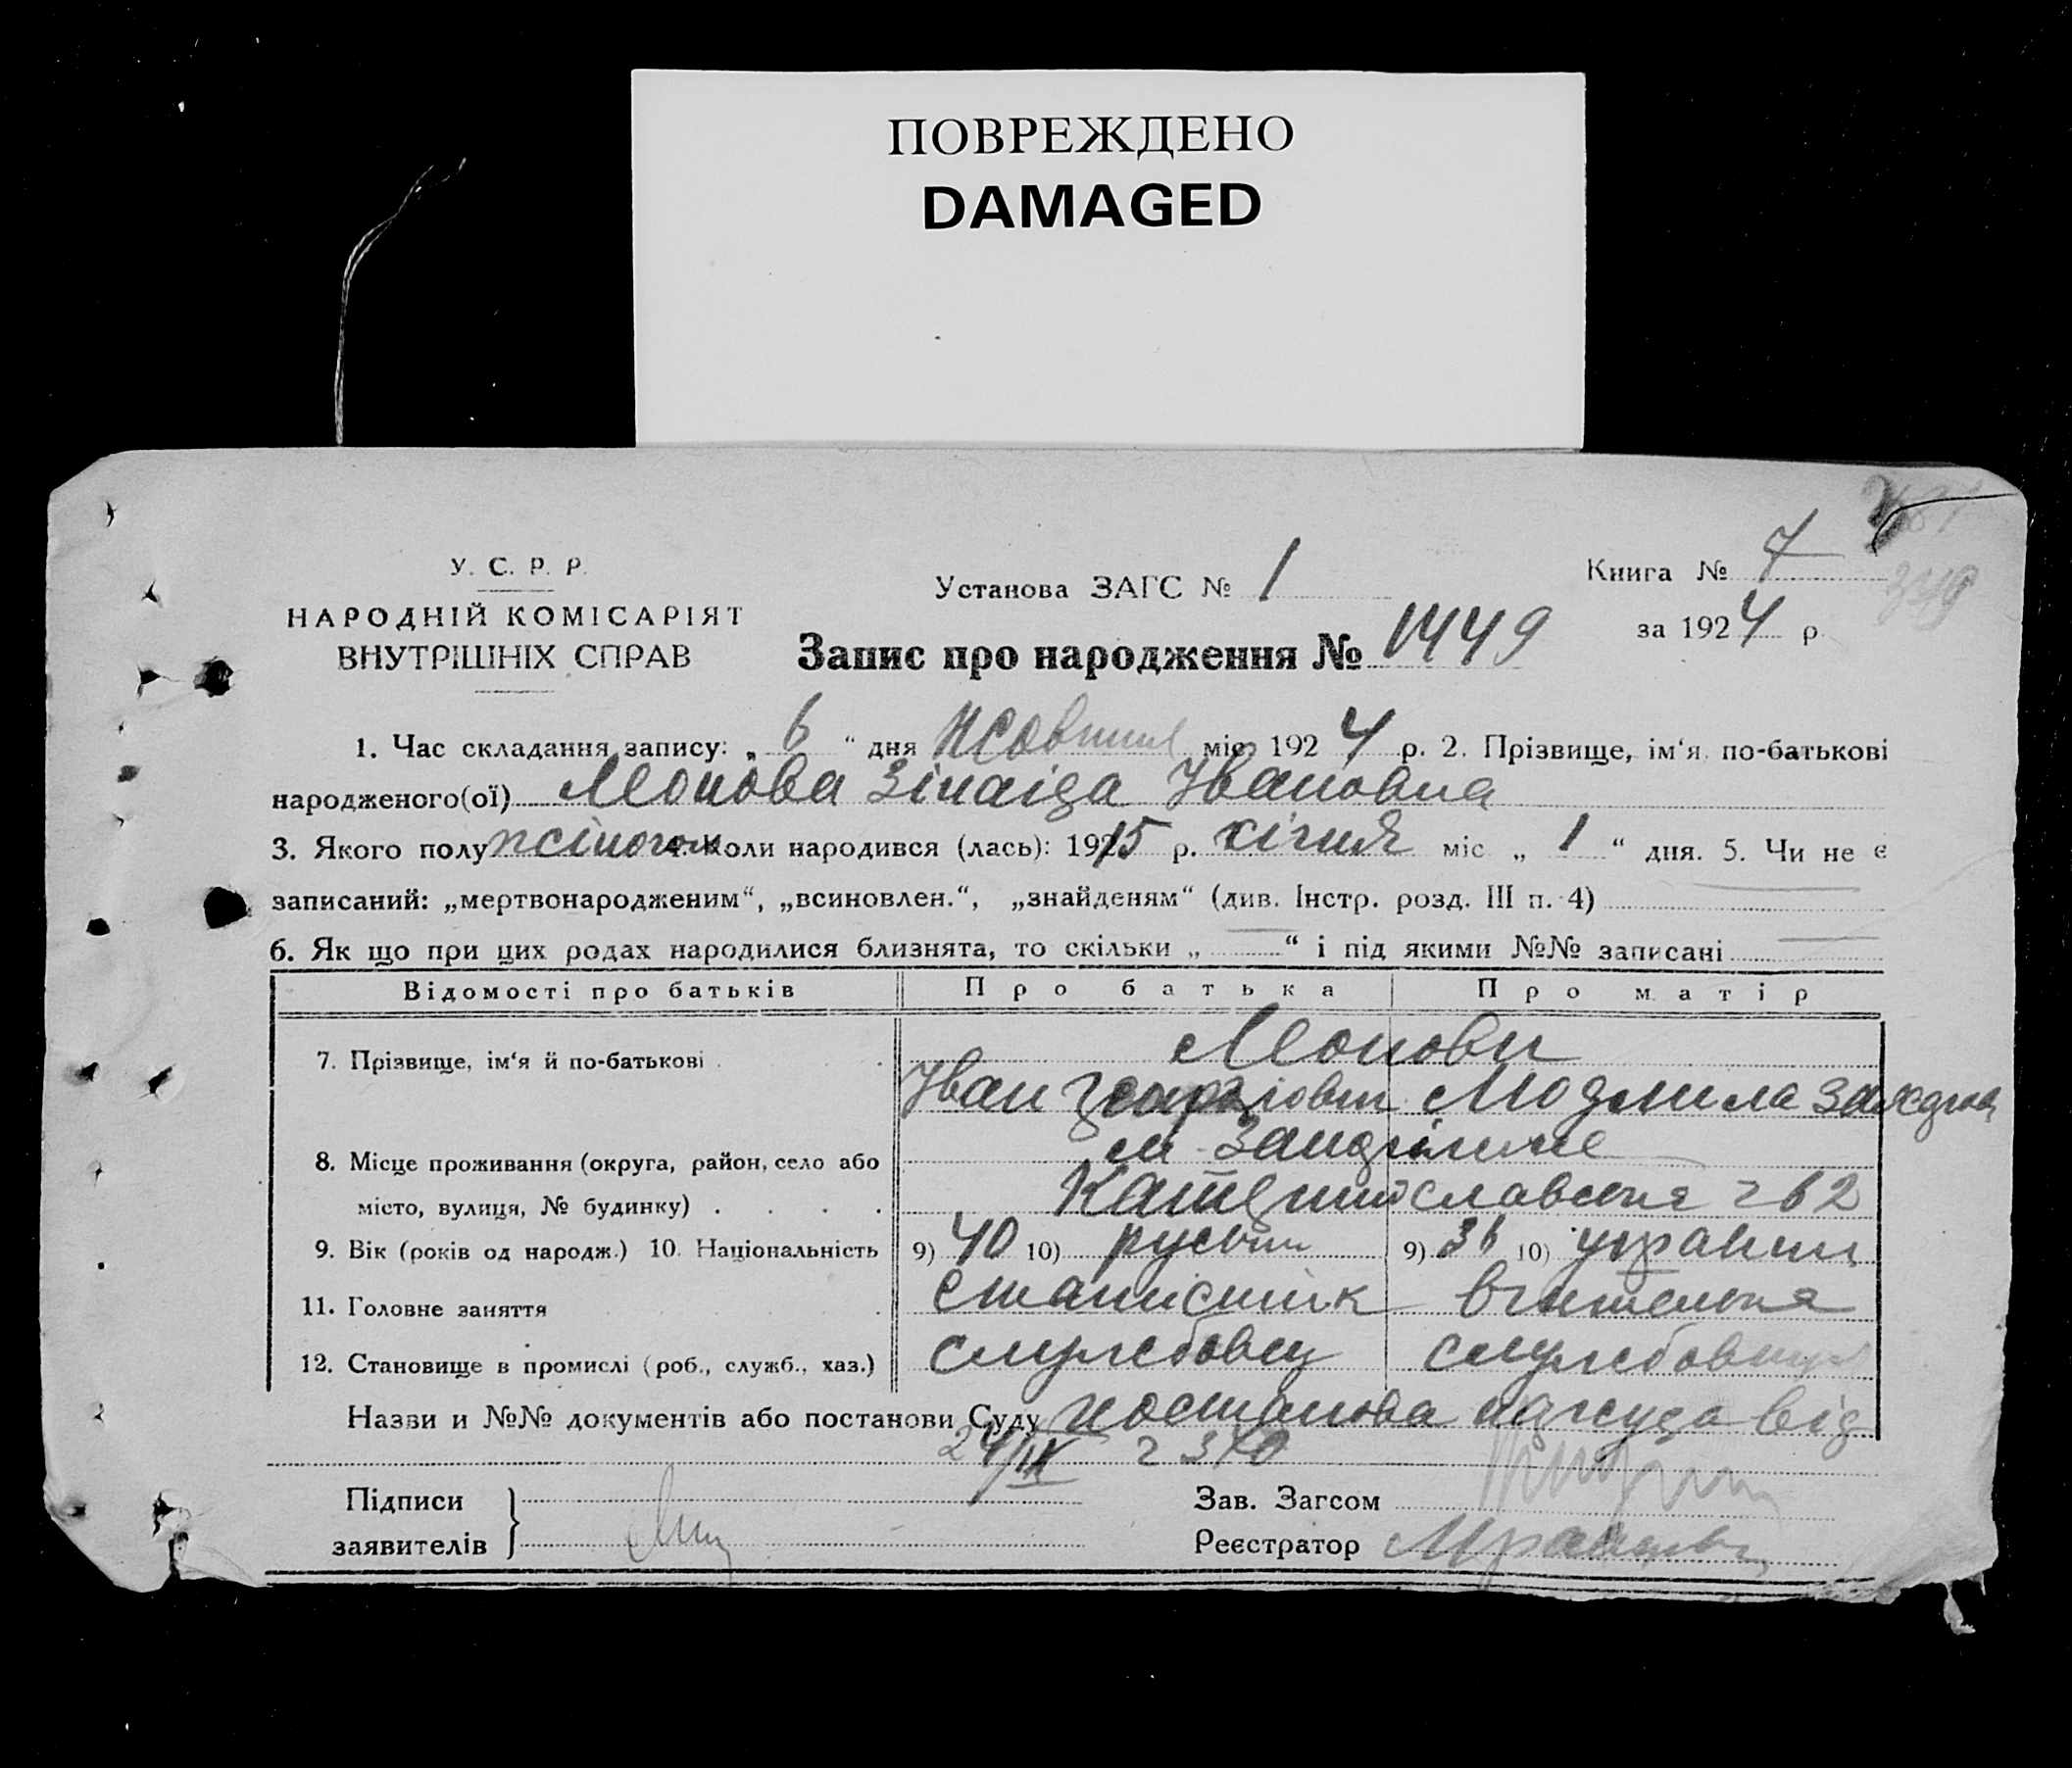 ПОВРЕЖДЕНО
DAMAGED
У. С. Р. Р.
НАРОДНІЙ КОМІСАРІЯТ
ВНУТРІШНІХ СПРАВ
Установа ЗАГС № 1
Книга № 7
за 1924 р.
Запис про народження № 1449
1. Час складання запису: „ 6 “ дня Жовтня міс. 1924 р. 2. Прізвище, ім'я, по-батькові
народженого(ої) Зінаіда Івановна
3. Якого полу жіночого 4. Коли народився (лась): 1915 р. січня міс „ 1 “ дня. 5. Чи не є
записаний: „мертвонародженим“, „всиновлен.“, „знайденям“ (див. Інстр. розд. III п. 4)
6. Як що при цих родах народилися близнята, то скільки „ — “ і під якими №№ записані
Відомості про батьків Про батька Про матір
7. Прізвище, ім'я й по-батькові
Іван Людмила
8. Місце проживання (округа, район, село або
місто, вулиця, № будинку)
9. Вік (років од народж.) 10. Національність 9) 40 10) 9) 36 10)
11. Головне заняття статистик вчителька
12. Становище в промислі (роб., служб., хаз.) службовец
Назви и №№ документів або постанови Суду постанова нарсуда від
24/IX
Підписи
заявителів
Зав. Загсом
Реєстратор